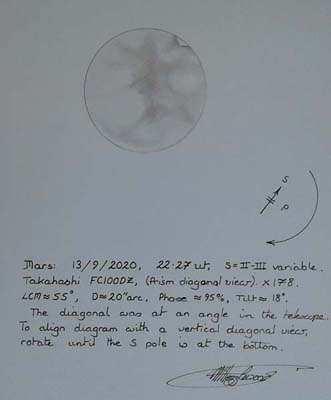 S
P
Mars: 13/9/2020, 22·27 ut, S=II-III variable.
Takahashi FC100DZ, (Prism diagonal view). x178.
LCM≈55°, D≈20"arc, Phase≈95%, Tilt≈18°.
The diagonal was at an angle in the telescope.
To align diagram with a vertical diagonal view,
rotate until the S pole is at the bottom.